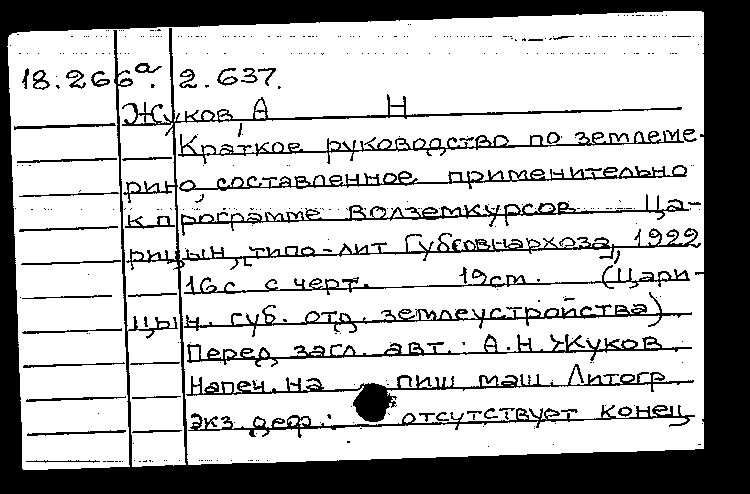 18.266а. 2.637.
Жуков, А Н
Краткое руководство по землеме-
рию, составленное применительно
к программе Волземкурсов Ца-
рицын, [типо-лит Губсовнархоза], 1922
16с с черт. 19см. (Цари-
цын. губ. отд. землеустройства)
Перед загл. авт.: А.Н.Жуков.
Напеч. на пиш маш. Литогр
экз. деф.: отсутствует конец.